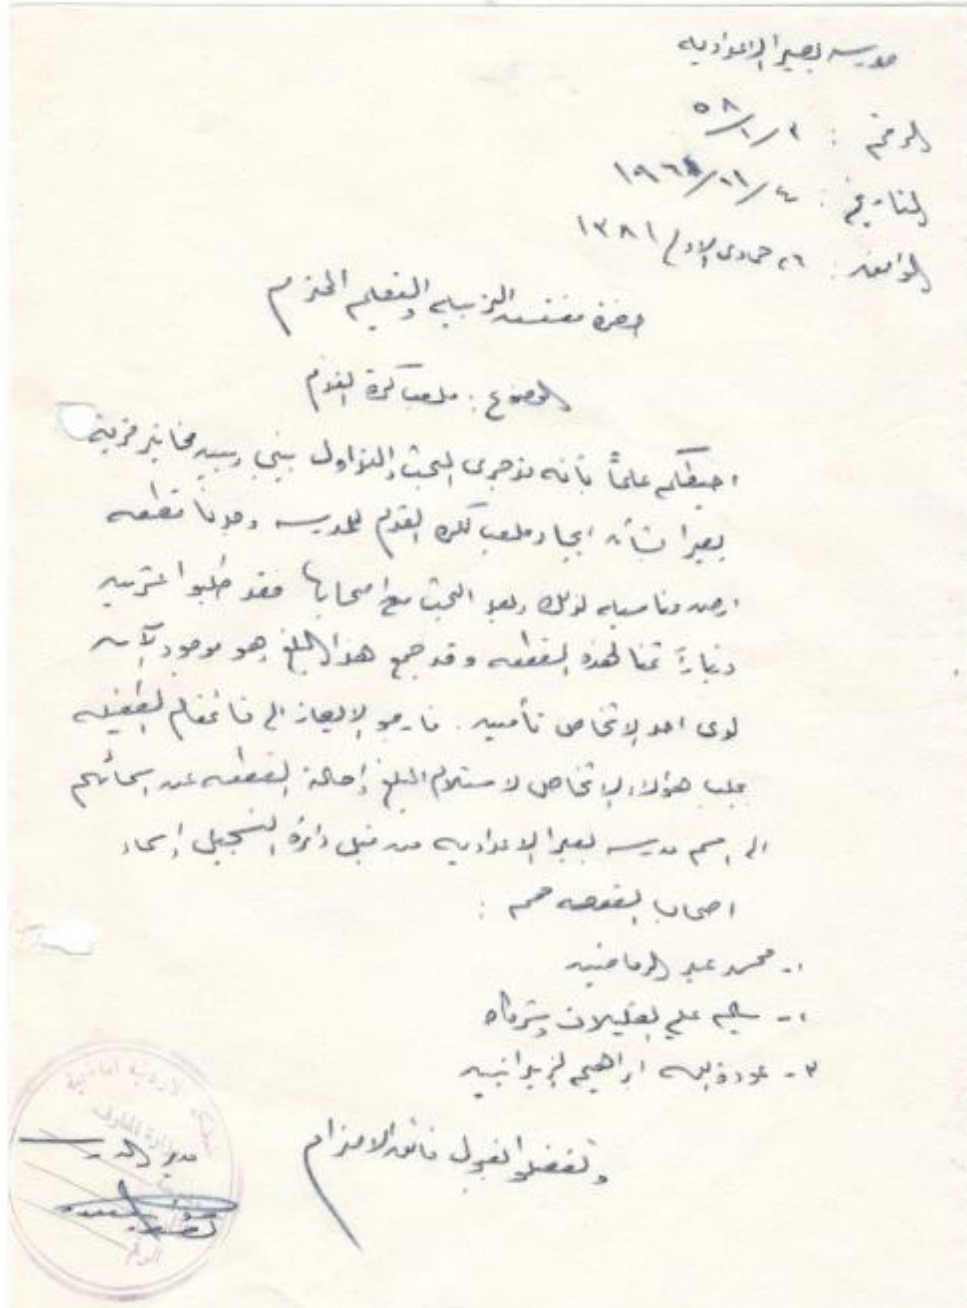 مدرسة بصيرا الاعدادية
الرقم : ٢/١٠/٥٨
التاريخ : ٤/١١/١٩٦١
الموافق : ٢٦ جمادى الاولى ١٣٨١
حضرة مفتش التربية والتعليم المحترم
الموضوع : ملعب كرة القدم
احيطكم علماً بأنه قد جرى البحث والتداول بيني وبين مخاتير قرية
بصيرا بشأن ايجاد ملعب لكرة القدم للمدرسة وجدنا قطعة
ارض مناسبة لذلك وبعد البحث مع اصحابها فقد طلبوا عشرين
ديناراً ثمنا لهذه القطعة وقد جمع هذا المبلغ وهو موجود الآن
لدى احد الاشخاص تأمين . فارجو الايعاز الى قائمقام الطفيلة
بجلب هؤلاء الاشخاص لاستلام المبلغ وإحالة القطعة عن اسمائهم
الى اسم مدرسة بصيرا الاعدادية من قبل دائرة التسجيل واسماء
اصحاب القطعة هم :
١- محمد عبد الرفاعين
٢- سالم علي وشركاه
٣- عودة ابراهيم
وتفضلوا بقبول فائق الاحترام
مدير المدرسة
وزارة المعارف